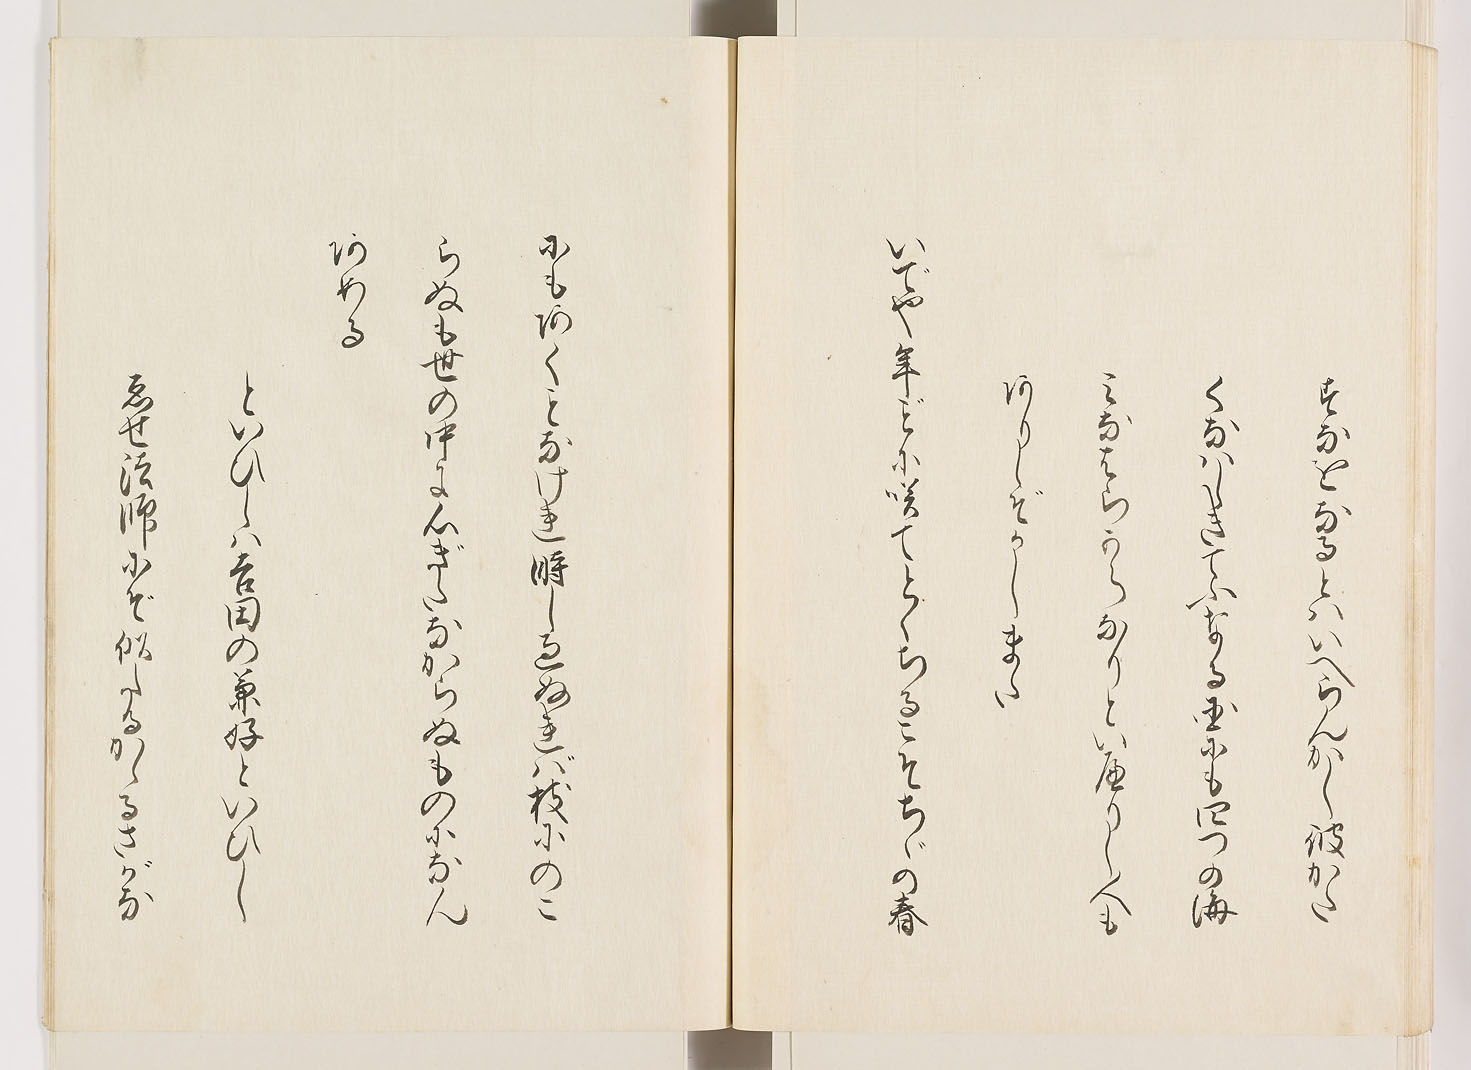 すなをなるとはいへらんかし彼かた
くなはしきてふなる国にも四つの海
みなはらからなりといへりし人も
ありしぞかしまた
いでや年ごとに咲てとくちるこそちゞの春
にもあくことなけれ時し過ぬれば枝にのこ
らぬも世の中に心ぎたなからぬものになん
あめる
といひしは吉田の兼好といひし
ゑせ法師にぞ似たるかゝるさがな